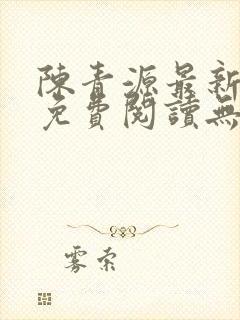 陳青源最新
免費閱讀無
雾索